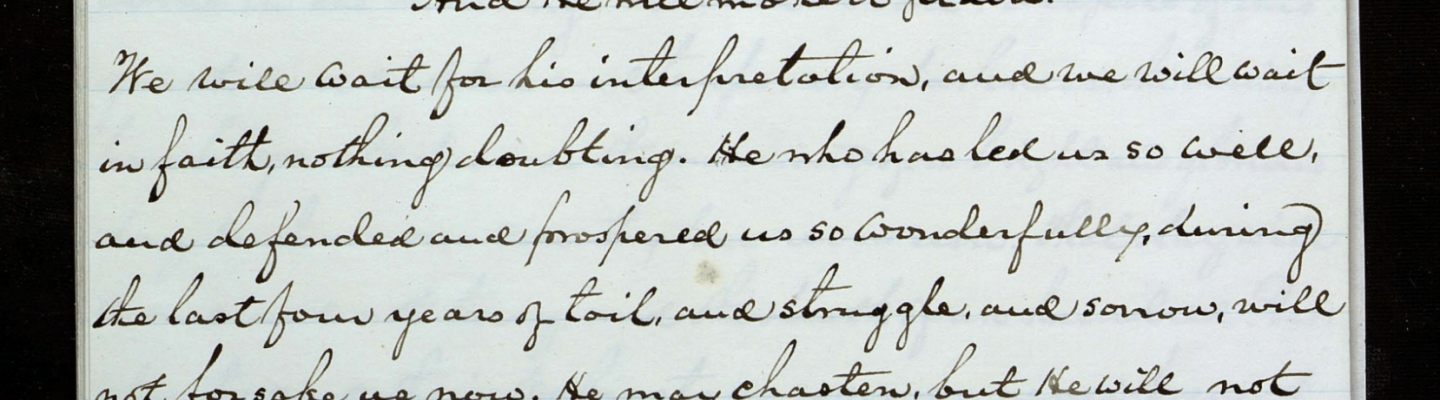 And He will make it plain.
We will wait for his interpretation, and we will wait
in faith, nothing doubting. He who has led us so well,
and defended and prospered us so wonderfully, during
the last four years of toil, and struggle, and sorrow, will
not forsake us now. He may chasten, but He will not